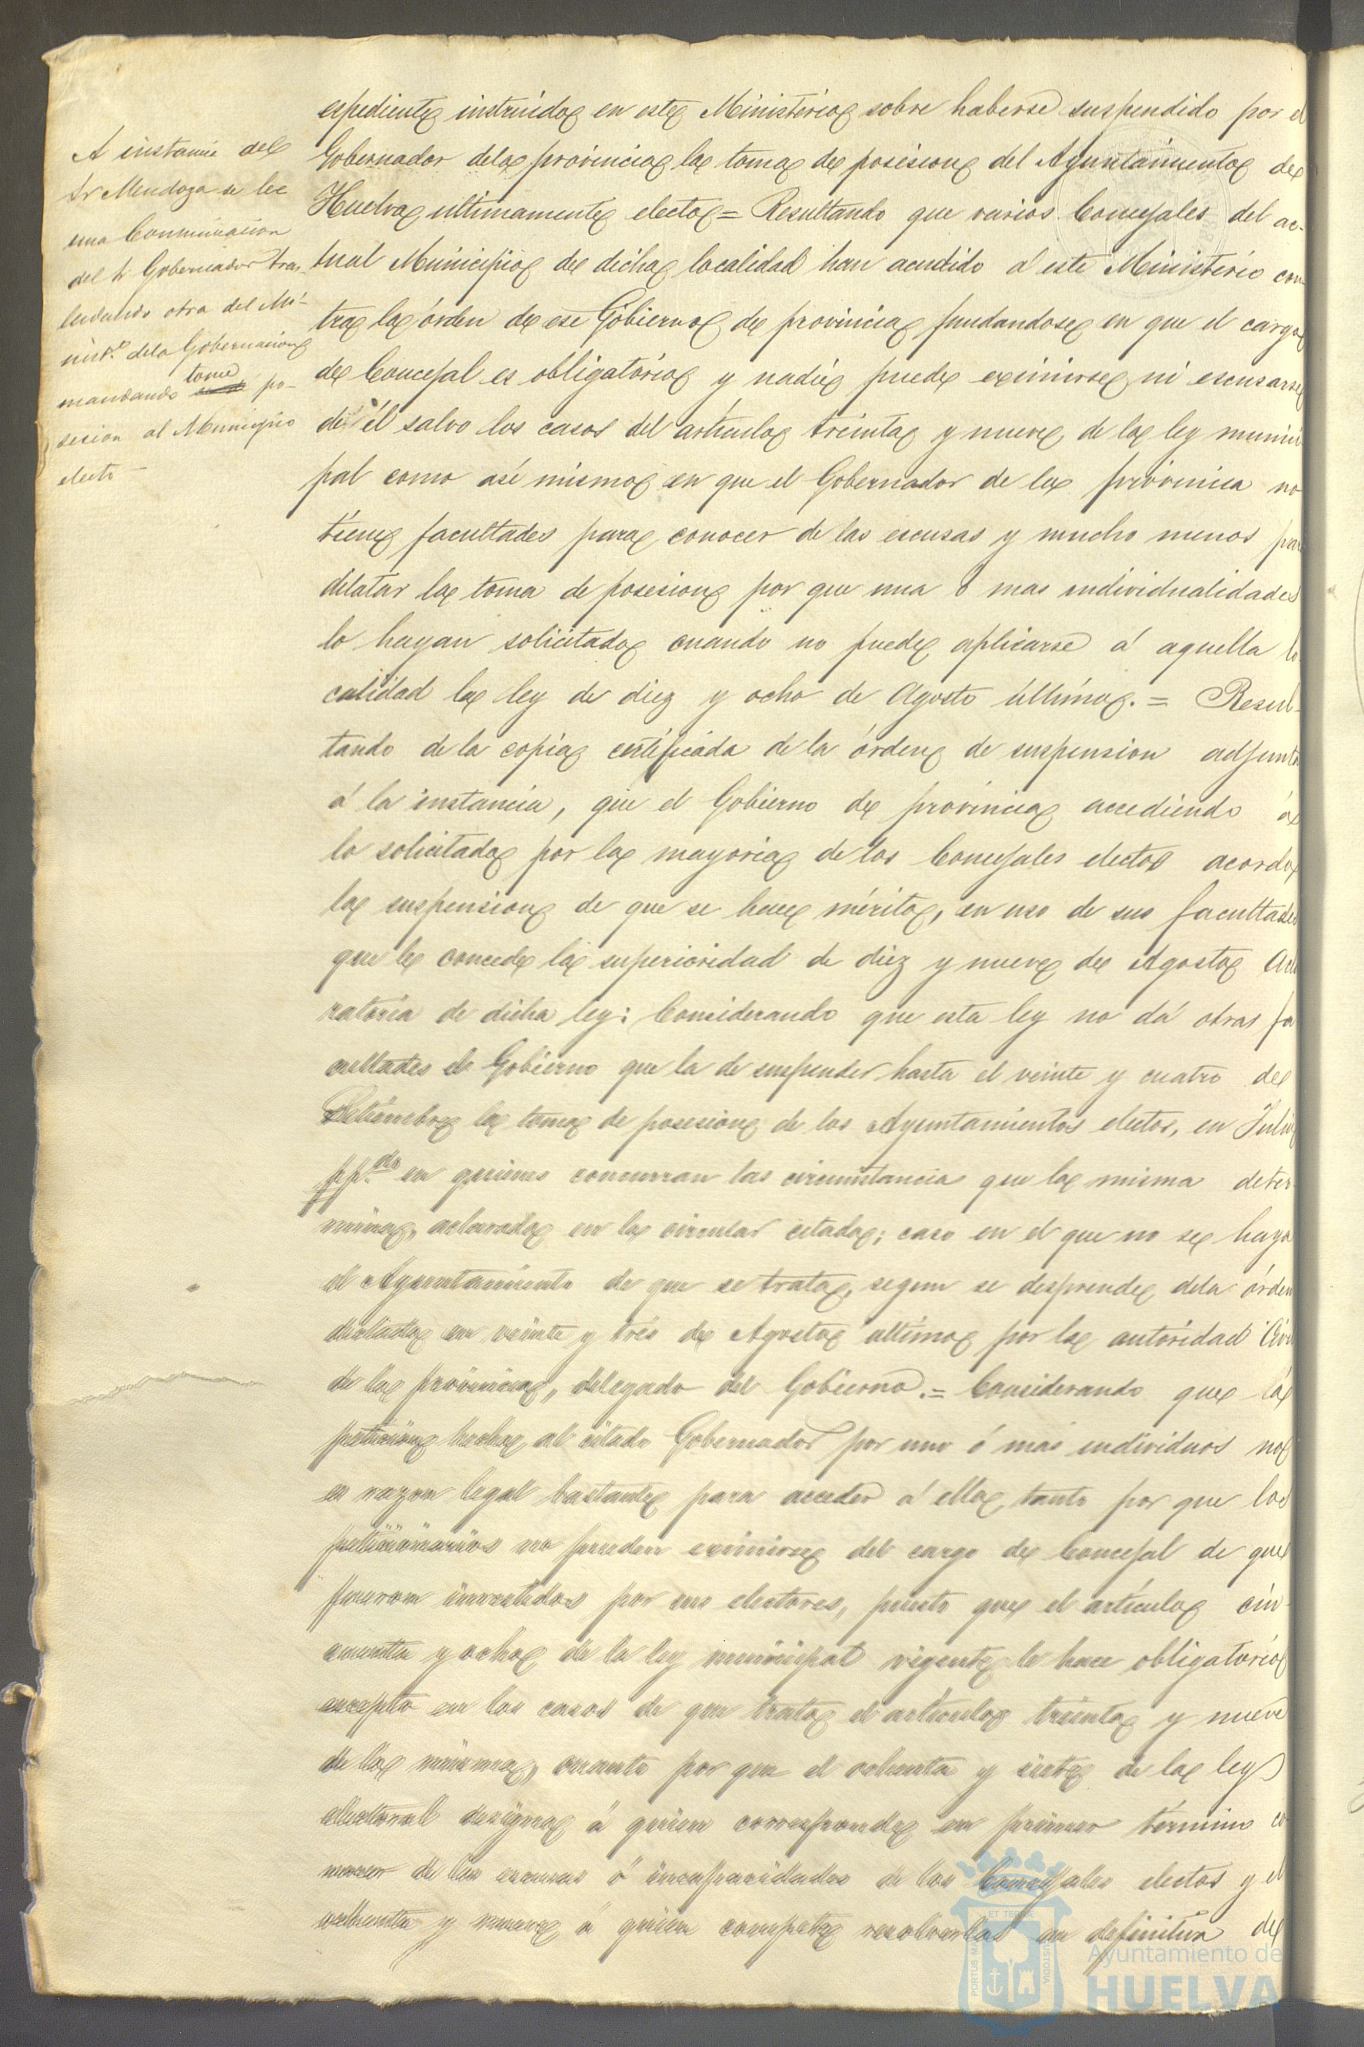 A instancia del
Sr Mendoza se lee
una Comunicacion
del Sr Gobernador tras-
ladando otra del Mi-
nist.º dela Gobernacion
mandando tome po-
sesion al Municipio
electo
espediente instruido en este Ministerio sobre haberse suspendido por el
Gobernador dela provincia la toma de posesion del Ayuntamiento de
Huelva ultimamente electo = Resultando que varios Concejales del ac-
tual Municipio de dicha localidad han acudido á este Ministerio con
tra la órden de ese Gobierno de provincia fundandose en que el cargo
de Concejal es obligatorio y nadie puede eximirse ni escusarse
de él salvo los casos del artículo treinta y nueve de la ley munici
pal como asi mismo en que el Gobernador de la provincia no
tiene facultades para conocer de las escusas y mucho menos para
dilatar la toma de posesion por que una ó mas individualidades
lo hayan solicitado cuando no puede aplicarse á aquella lo
calidad la ley de diez y ocho de Agosto último. = Resul-
tando de la copia certificada de la órden de suspension adjunta
á la instancia, que el Gobierno de provincia accediendo á
lo solicitado por la mayoria de los Concejales electos acordo
la suspension de que se hace mérito, en uso de sus facultades
que le concede la superioridad de diez y nueve de Agosto acla
ratoria de dicha ley: Considerando que esta ley no dá otras fa
cultades al Gobierno que la de suspender hasta el veinte y cuatro de
Setiembre la toma de posesion de los Ayuntamientos electos, en Julio
pp.do en quienes concurran las circunstancias que la misma deter
mina, aclarada en la circular citada; caso en el que no se haya
el Ayuntamiento de que se trata, segun se desprende dela órden
dictada en veinte y tres de Agosto último por la autoridad Civil
de la provincia, delegado del Gobierno. = Considerando que la
peticion hecha al citado Gobernador por uno ó mas individuos no
es razon legal bastante para acceder á ella, tanto por que los
peticionarios no pueden eximirse del cargo de Concejal de que
fueron investidos por sus electores, puesto que el artículo cin-
cuenta y ocho de la ley municipal vigente le hace obligatorio
excepto en los casos de que trata el artículo treinta y nueve
de la misma, cuanto por que el ochenta y siete de la ley
electoral designa á quien corresponde en primer término co
nocer de las escusas ó incapacidades de los Concejales electos y el
ochenta y nueve á quien compete resolverlas en definitiva de
Ayuntamiento de
HUELVA